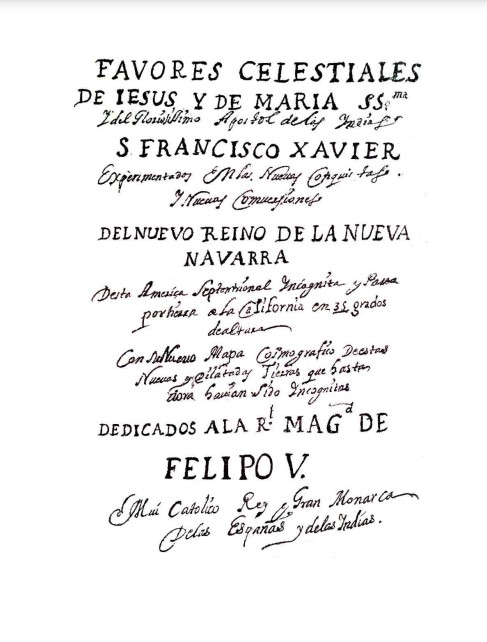 FAVORES CELESTIALES
DE IESUS, Y DE MARIA SS.ma
Y del Gloriosissimo Apostol de las Yndias
S. FRANCISCO XAVIER
Experimentados En las Nuevas Conquistas.
Y Nuevas Comuersiones
DEL NUEVO REINO DE LA NUEVA
NAVARRA
Desta America Septentrional Incognita y Passa
por tierra a la California en 35 grados
de altura
Con su Nuevo Mapa Cosmografico De estas
Nuevas y Dilatadas Tierras que hasta
aora havian sido Incognitas
DEDICADOS A LA R.l MAG.d DE
FELIPO V.
Mui Catolico Rey y Gran Monarca
De las Españas y de las Indias.